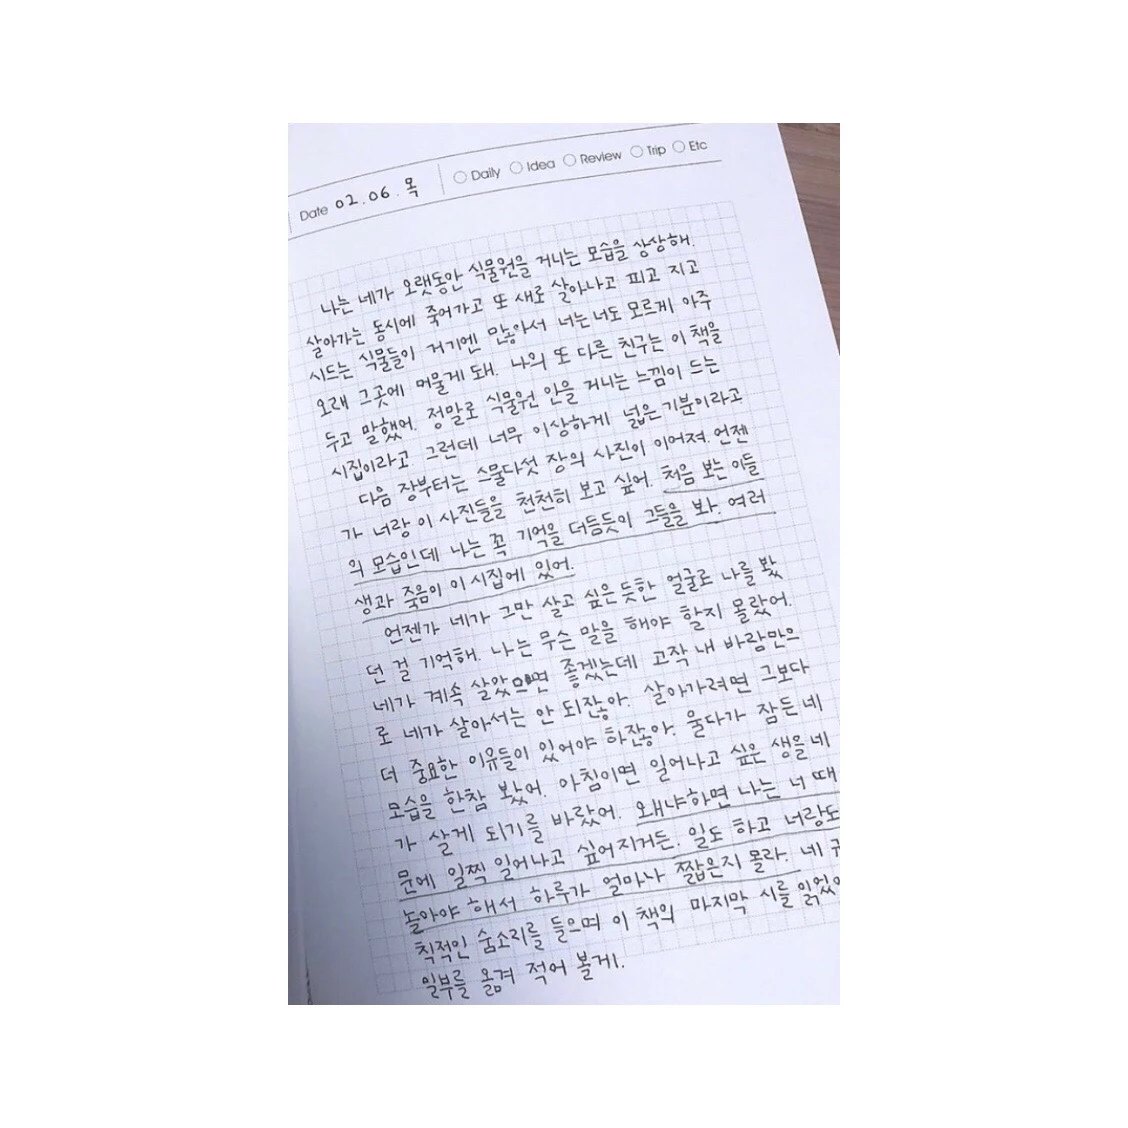 Date 02.06.목 Daily Idea Review Trip Etc
나는 네가 오랫동안 식물원을 거니는 모습을 상상해.
살아가는 동시에 죽어가고 또 새로 살아나고 피고 지고
시드는 식물들이 거기엔 많아서 너는 너도 모르게 아주
오래 그곳에 머물게 돼. 나의 또 다른 친구는 이 책을
두고 말했어. 정말로 식물원 안을 거니는 느낌이 드는
시집이라고 그런데 너무 이상하게 넓은 기분이라고
다음 장부터는 스물다섯 장의 사진이 이어져. 언젠
가 너랑 이 사진들을 천천히 보고 싶어. 처음 보는 이들
의 모습인데 나는 꼭 기억을 더듬듯이 그들을 봐. 여러
생과 죽음이 이 시집에 있어.
언젠가 네가 그만 살고 싶은 듯한 얼굴로 나를 봤
던 걸 기억해. 나는 무슨 말을 해야 할지 몰랐어.
네가 계속 살았으면 좋겠는데 고작 내 바람만으
로 네가 살아서는 안 되잖아. 살아가려면 그보다
더 중요한 이유들이 있어야 하잖아. 울다가 잠든 네
모습을 한참 봤어. 아침이면 일어나고 싶은 생을 네
가 살게 되기를 바랐어. 왜냐하면 나는 너 때
문에 일찍 일어나고 싶어지거든. 일도 하고 너랑도
놀아야 해서 하루가 얼마나 짧은지 몰라. 네
칙적인 숨소리를 들으며 이 책의 마지막 시를
일부를 옮겨 적어 볼게.